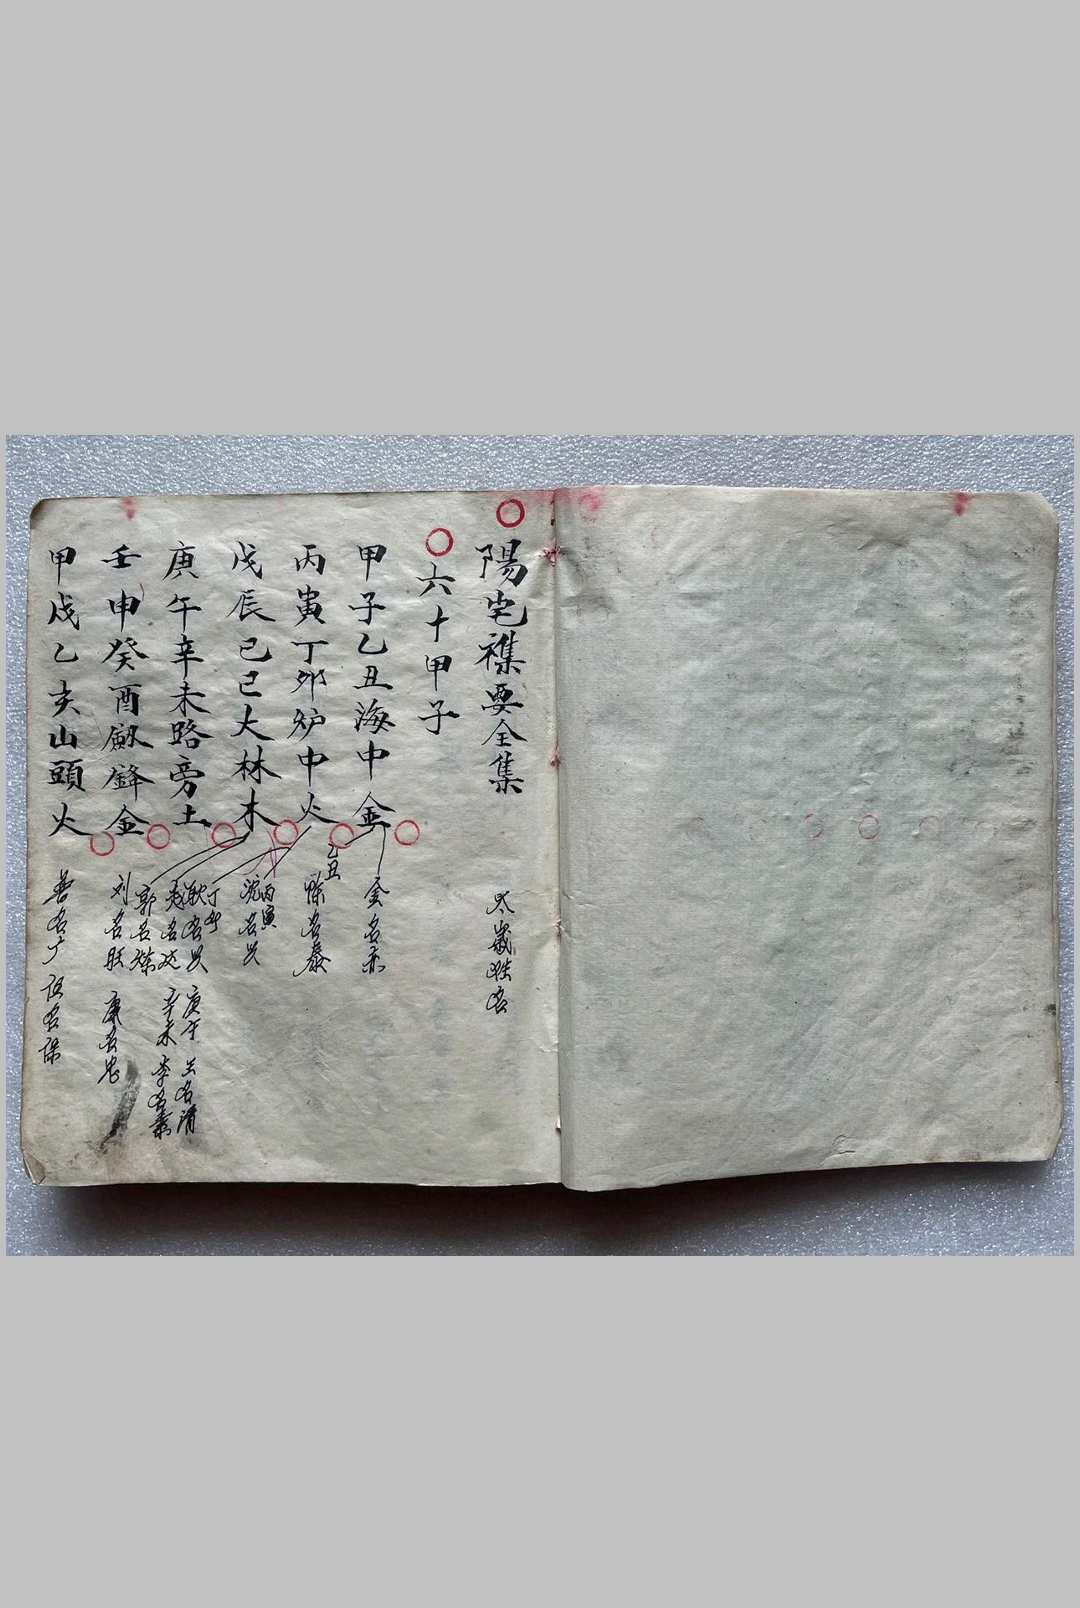 陽宅襍要全集
太歲姓名
六十甲子
甲子乙丑海中金
金名赤
乙丑
陳名泰
丙寅丁卯炉中火
丙寅
沈名兴
丁卯
耿名兴
戊辰己巳大林木
郭名燦
庚午辛未路旁土
庚午 王名清
辛未 李名素
壬申癸酉劔鋒金
刘名旺 康名忠
甲戌乙亥山頭火
名广 名保